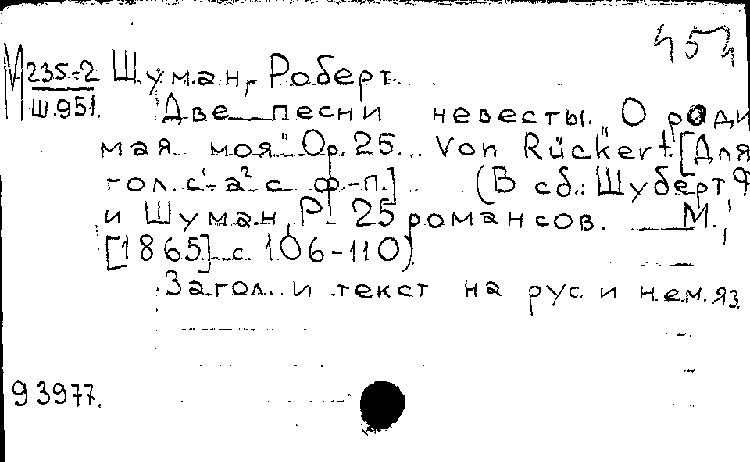 454
М235-2 Шуман, Роберт.
Ш.951. Две песни невесты. "О роди
мая моя" Op. 25. Von Rückert. [Для
гол. c¹-a² с ф-п.] (В сб.: Шуберт Ф
и Шуман, Р. 25 романсов. М.,
[1865] с. 106-110)
Загол. и текст на рус. и нем. яз.
93977.